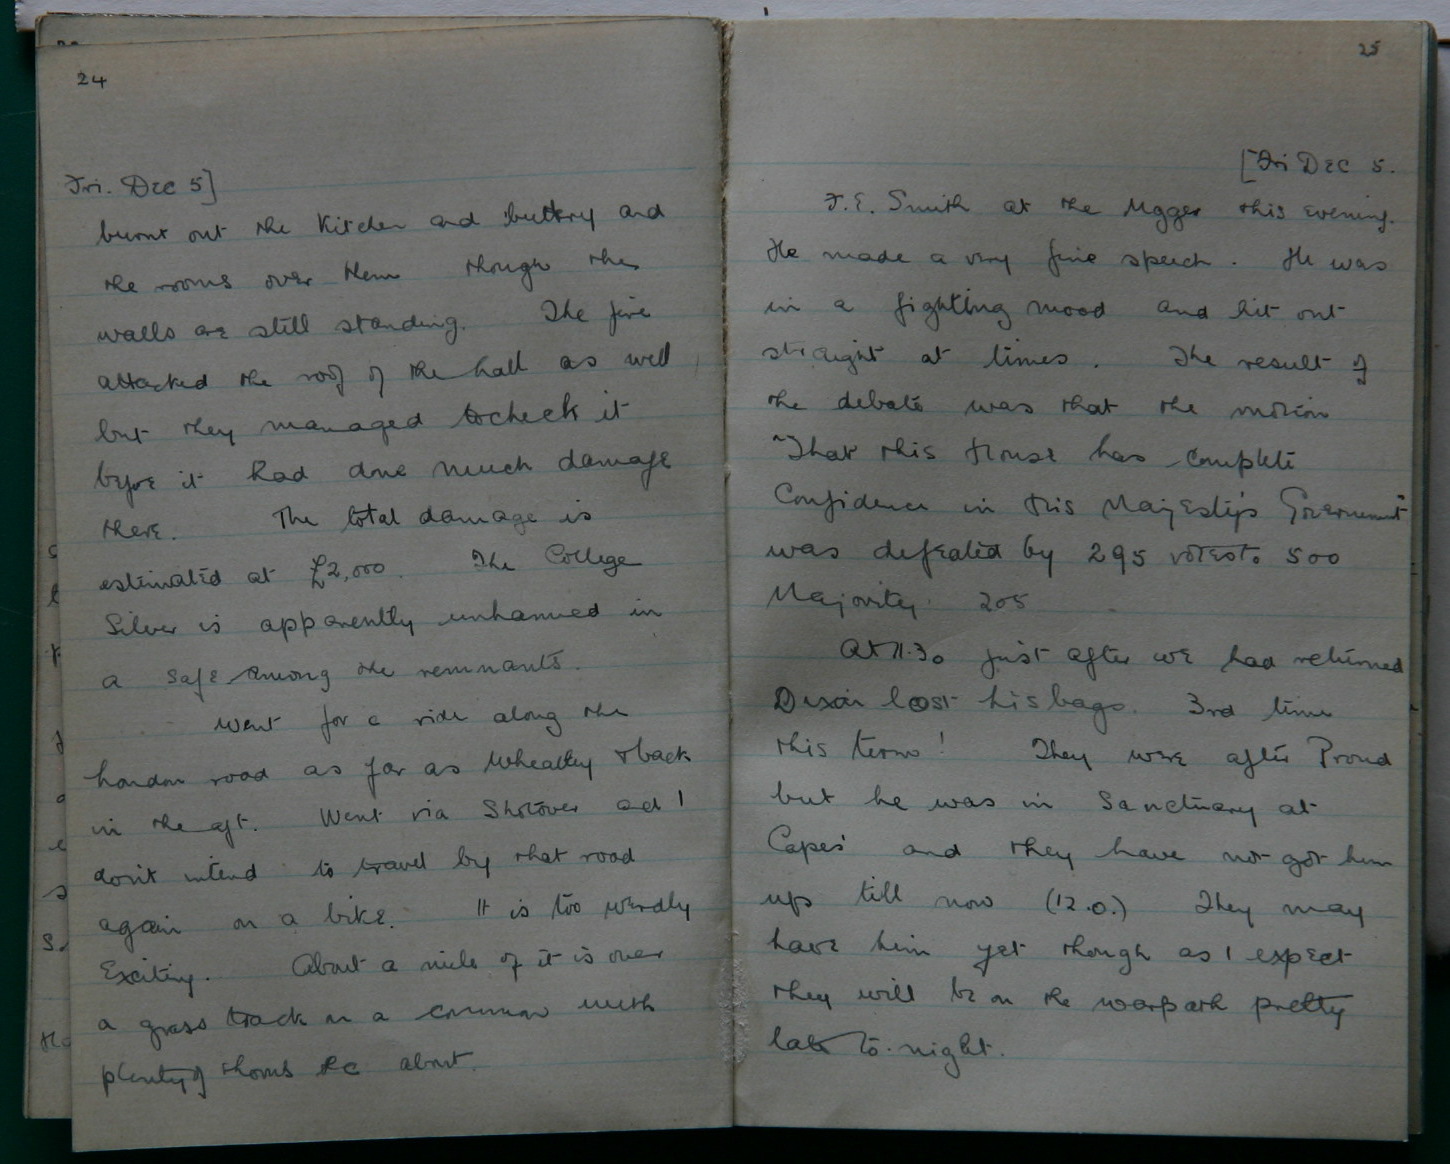 24
Fri. Dec 5]
burnt out the Kitchen and buttery and
the rooms over them though the
walls are still standing. The fire
attacked the roof of the hall as well
but they managed to check it
before it had done much damage
there. The total damage is
estimated at £2,000. The College
Silver is apparently unharmed in
a safe among the remnants.
Went for a ride along the
London road as far as Wheatley & back
in the aft. Went via Shotover and I
don't intend to travel by that road
again on a bike. It is too weirdly
exciting. About a mile of it is over
a grass track on a common with
plenty of thorns &c about.
25
[Fri Dec 5.
F.E. Smith at the Ugger this evening.
He made a very fine speech. He was
in a fighting mood and hit out
straight at times. The result of
the debate was that the motion
"That this House has complete
Confidence in His Majesty's Government
was defeated by 295 votes to 500
Majority 205
At 11.30 just after we had returned
lost his bags. 3rd time
this term! They were after Proud
but he was in Sanctuary at
Capes' and they have not got him
up till now (12.0.) They may
have him yet though as I expect
they will be on the warpath pretty
late to-night.